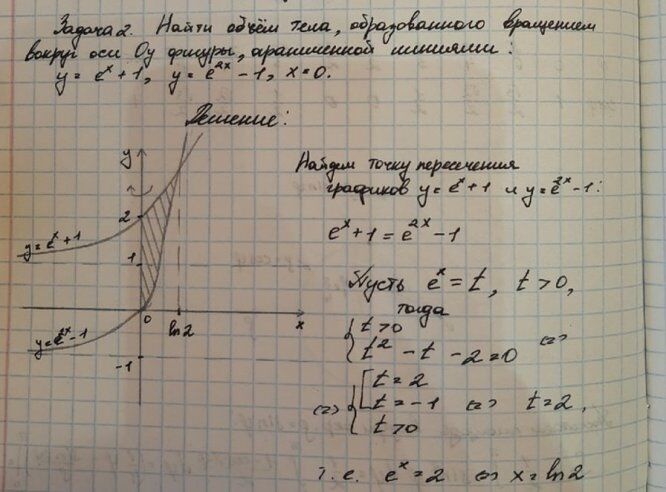 Задача 2. Найти объём тела, образованного вращением
вокруг оси Oy фигуры, ограниченной линиями:
y = eˣ + 1, y = e²ˣ - 1, x = 0.
Решение:
y
2
y = eˣ + 1
1
0
ln 2
x
y = e²ˣ - 1
-1
Найдем точку пересечения
графиков y = eˣ + 1 и y = e²ˣ - 1:
eˣ + 1 = e²ˣ - 1
Пусть eˣ = t, t > 0,
тогда
{ t > 0
{ t² - t - 2 = 0 <=>
<=> { [ t = 2
[ t = -1 <=> t = 2,
{ t > 0
т. е. eˣ = 2 <=> x = ln 2